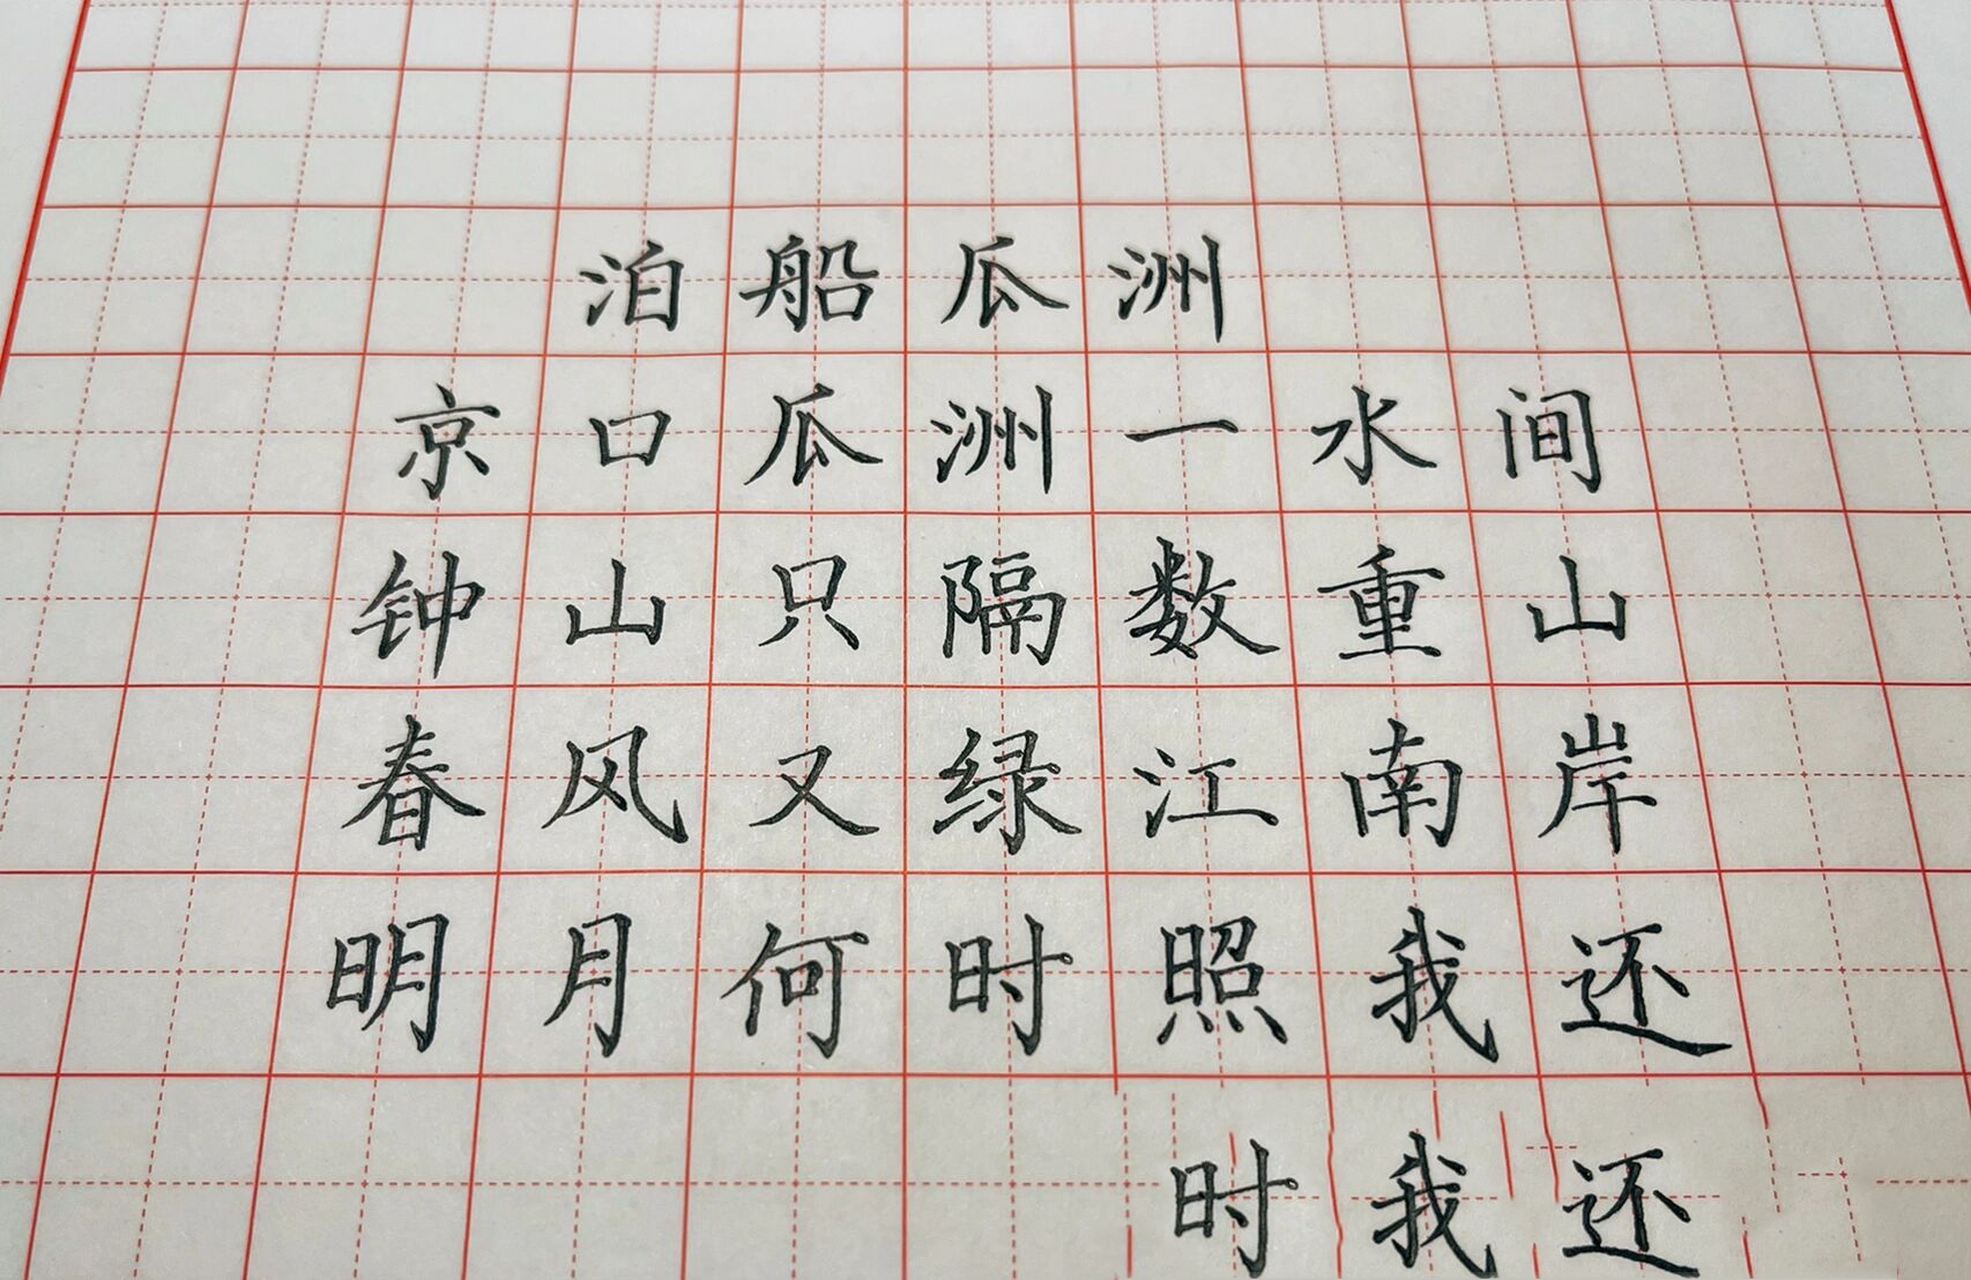 泊船瓜洲
京口瓜洲一水间
钟山只隔数重山
春风又绿江南岸
明月何时照我还
时我还